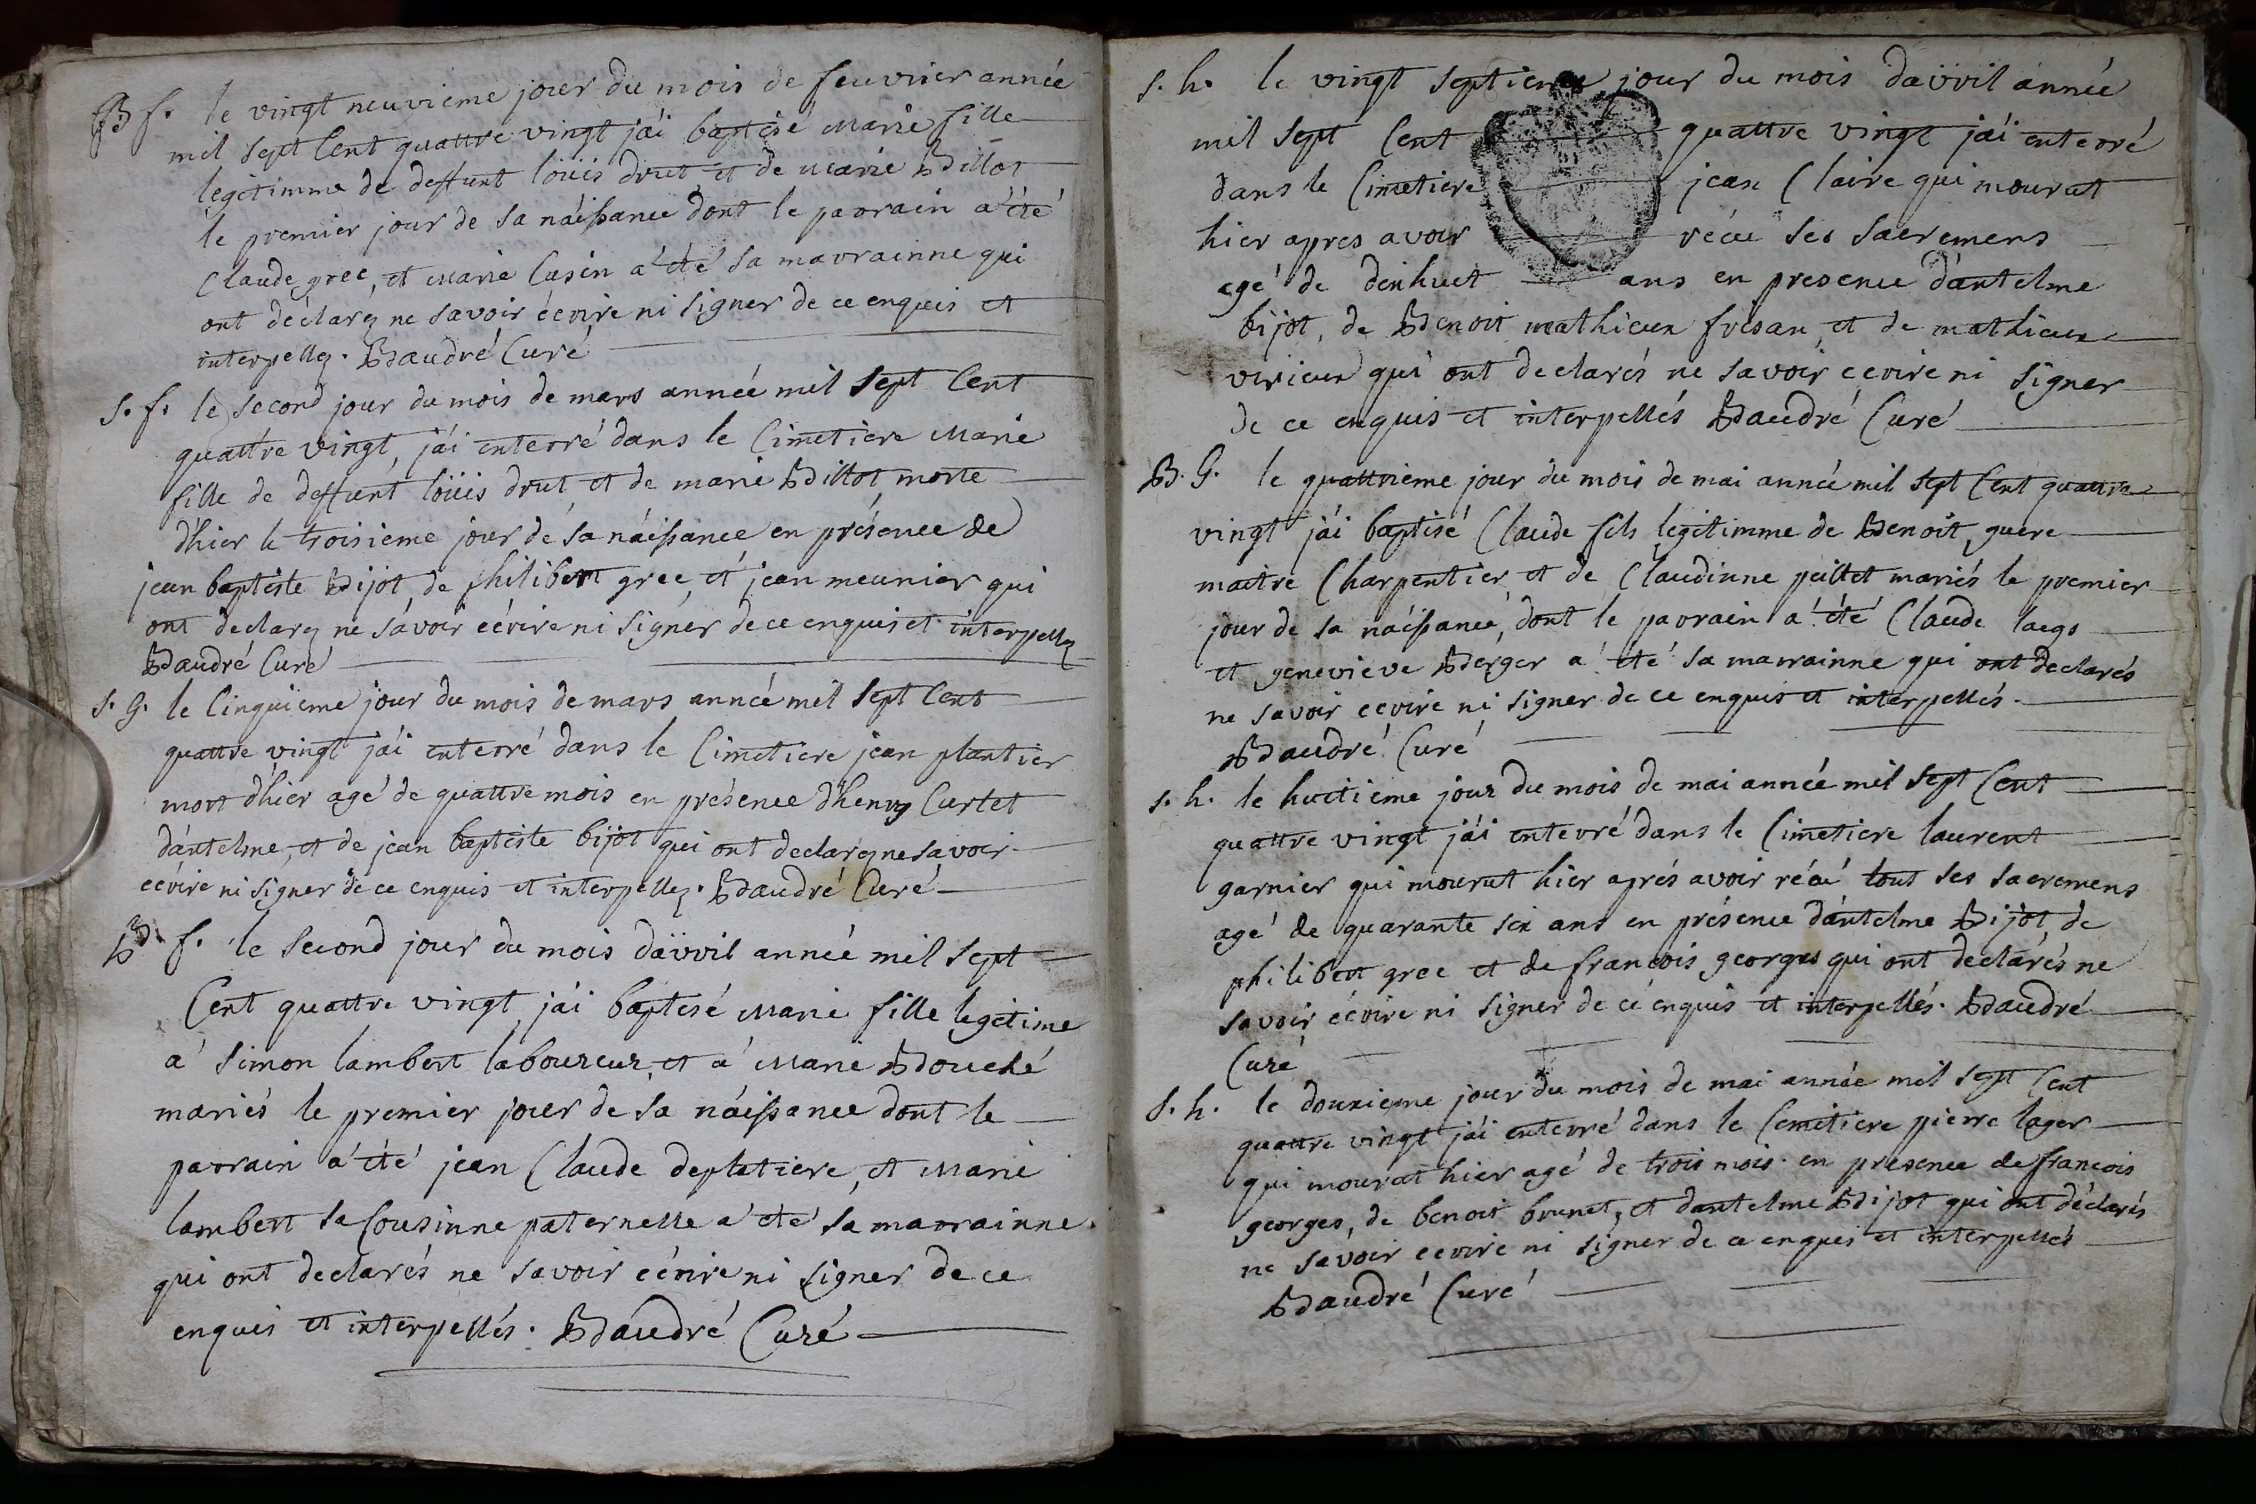 B f. le vingt neuvieme jour du mois de feuvrier année
mil sept Cent quattre vingt j'ái baptisé Marie fille
legitimme de deffunt loüis drut et de marie Billot
le premier jour de sa náissance dont le parrain a été
Claude gree, et Marie Cusin a été sa marrainne qui
ont déclarez ne savoir écrire ni signer de ce enquis et
interpellez. Baudré Curé
S. f. le second jour du mois de mars année mil sept Cent
quattre vingt, j'ái enterré dans le Cimetiere Marie
fille de deffunt loüis drut et de marie Billot, morte
d'hier le troisieme jour de sa náissance en présence de
jean baptiste Bijot, de philibert gree, et jean meunier qui
ont declarez ne sávoir écrire ni signer de ce enquis et interpellez
Baudré Curé
S. G. le Cinquieme jour du mois de mars année mil sept Cent
quattre vingt j'ái enterré dans le Cimetiere jean plantier
mort d'hier agé de quattre mois en présence d'henry Curtet
d'ántelme, et de jean baptiste bijot qui ont declarez ne savoir
ecrire ni signer de ce enquis et interpellez. Baudré Curé
B. f. le second jour du mois davril année mil sept
Cent quattre vingt j'ái baptisé Marie fille legitime
a simon lambert laboureur, et a Marie Bouché
mariés le premier jour de sa náissance dont le
parrain a été jean Claude deplatiere, et Marie
lambert sa Cousinne paternelle a été sa marrainne
qui ont declarés ne savoir écrire ni signer de ce
enquis et interpellés. Baudré Curé
S. h. le vingt septieme jour du mois davril année
mil sept Cent quattre vingt j'ái enterré
dans le Cimetiere jean Claire qui mourat
hier apres avoir récu ses sacremens
agé de dixhuet ans en presence d'ántelme
bijot, de Benoit mathieux fresan, et de mathieux
virieux qui ont declarés ne savoir ecrire ni signer
de ce enquis et interpellés Baudré Curé
B. G. le quattrieme jour du mois de mai année mil sept Cent quattre
vingt j'ái baptisé Claude fils legitimme de Benoit guere
maitre Charpentier, et de Claudinne peillet mariés le premier
jour de sa náissance, dont le parrain a été Claude
et genevieve Berger a été sa marrainne qui ont declarés
ne savoir ecrire ni signer de ce enquis et interpellés.
Baudré Curé
S. h. le huitieme jour du mois de mai année mil sept Cent
quattre vingt j'ái enterré dans le Cimetiere laurent
garnier qui mourut hier aprés avoir récu tout ses sacremens
agé de quarante six ans en présence d'ántelme Bijot, de
philibert gree et de francois georges qui ont déclarés ne
savoir écrire ni signer de cé enquis et interpellés. Baudré
Curé
S. h. le douxieme jour du mois de mai année mil sept Cent
quattre vingt j'ái enterré dans le Cemetiere pierre lager
qui mourat hier agé de trois mois en presence de francois
georges, de benoit brunet, et dantelme Bijot qui ont déclarés
ne sávoir ecrire ni signer de ce enquis et interpellés
Baudré Curé